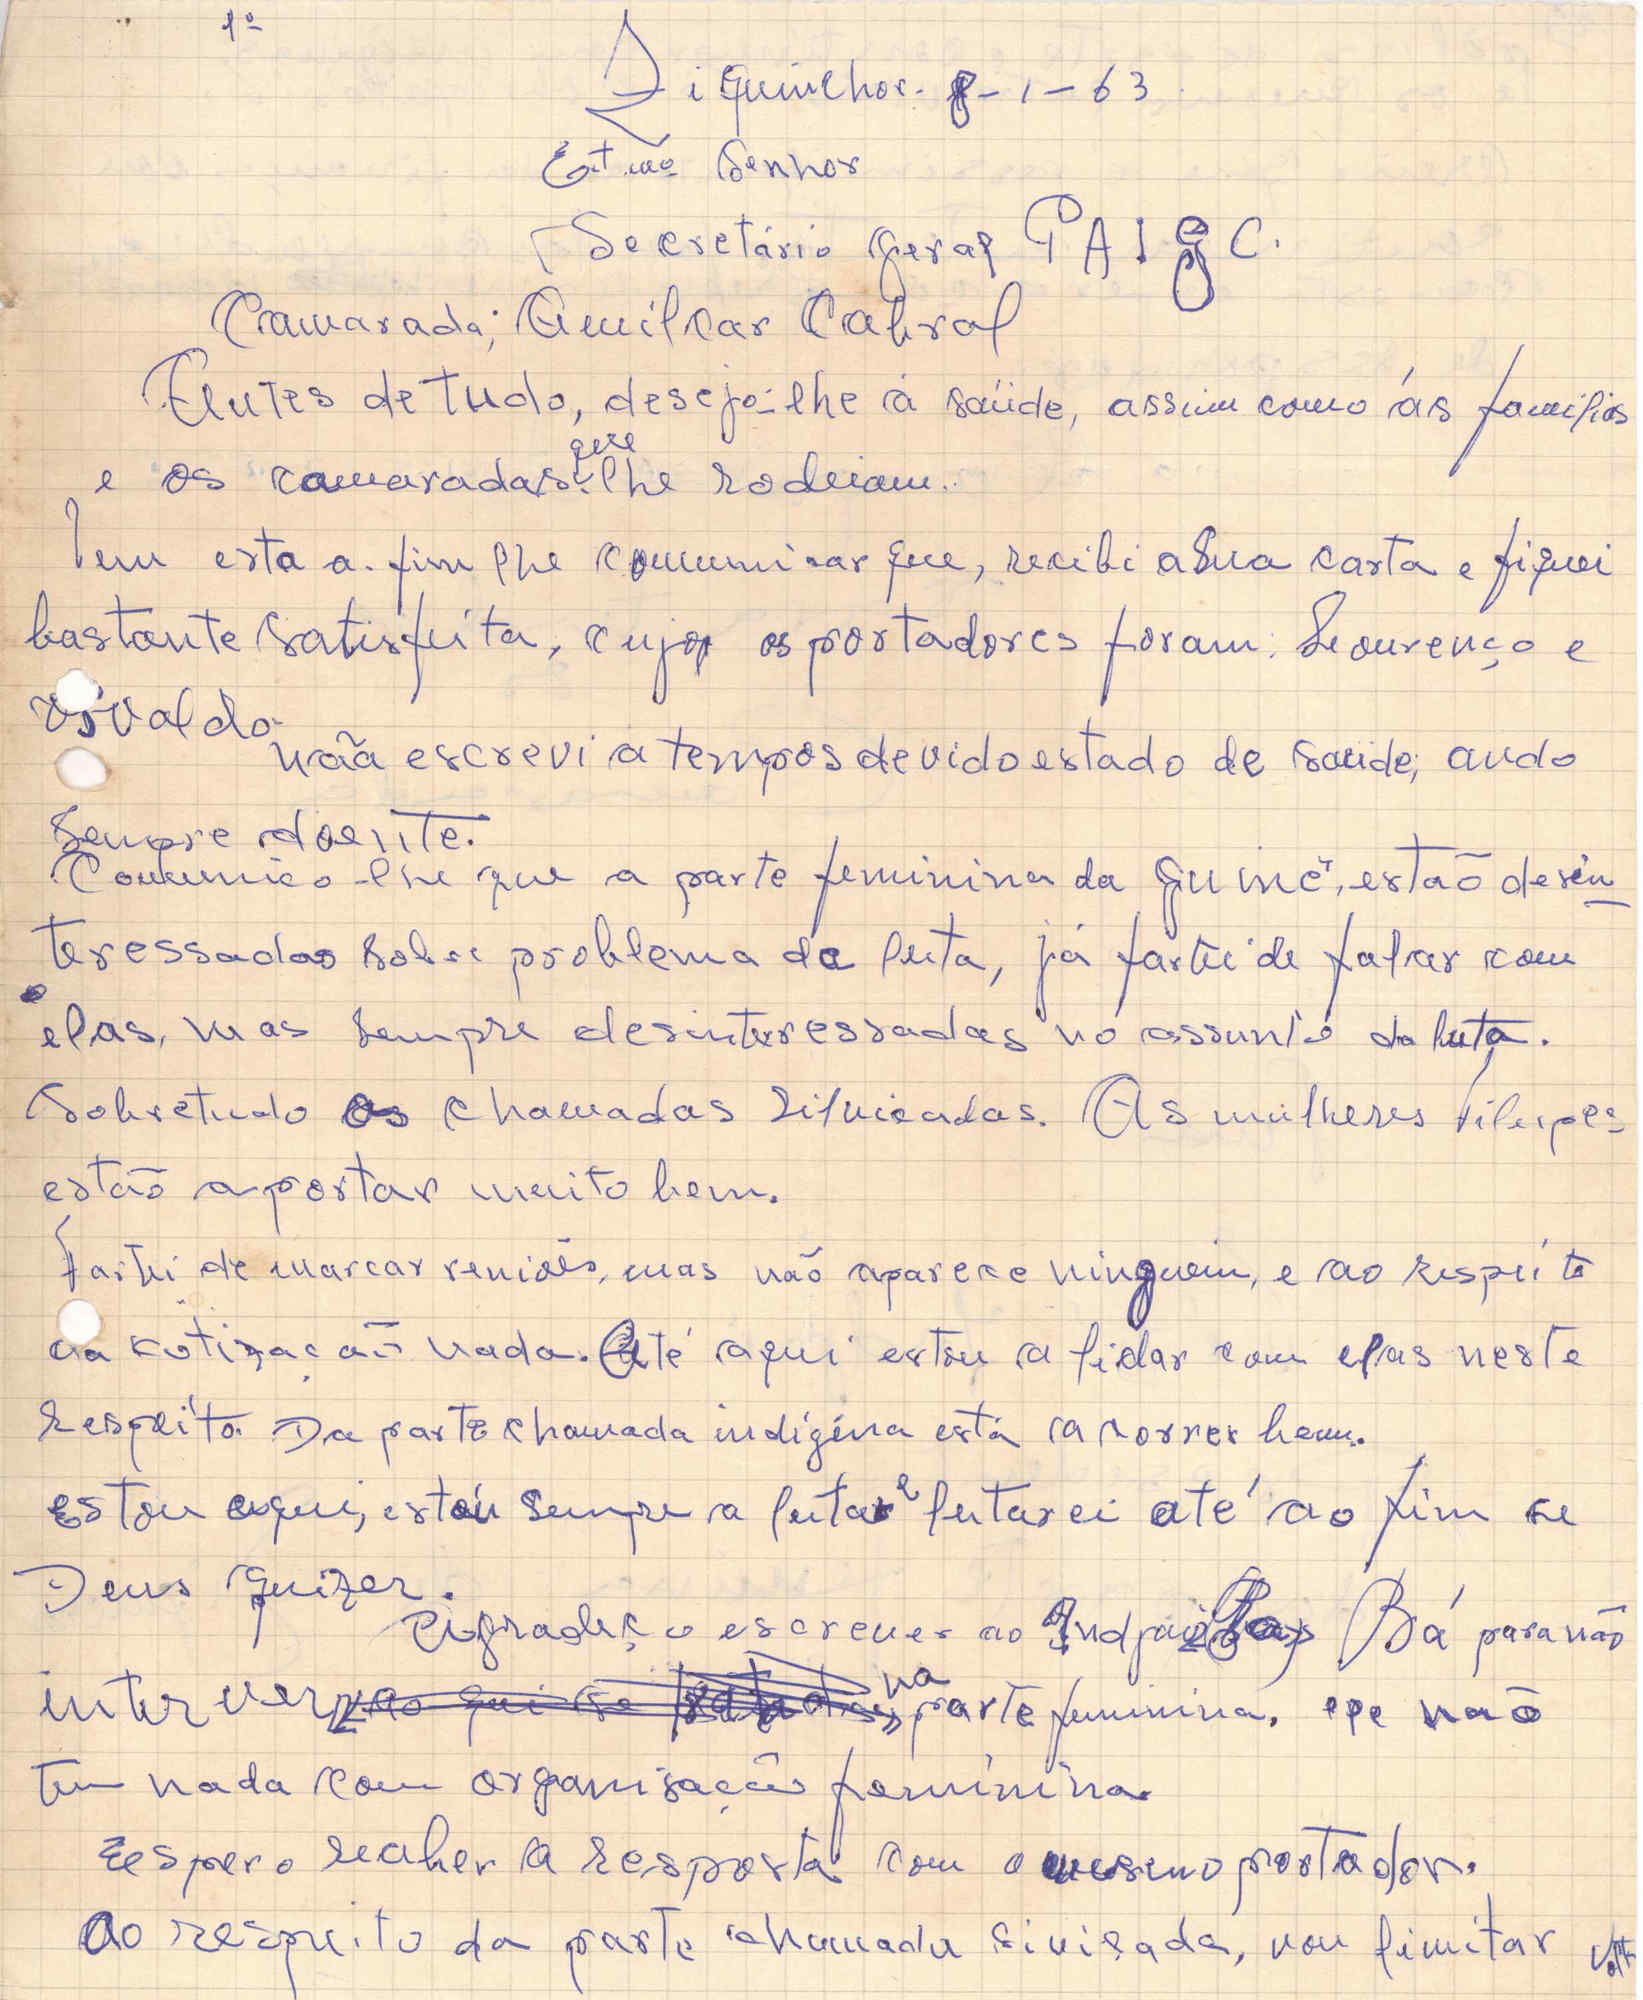 1º
Ziguinchor. 8-1-63
Ext.mo Senhor
Secretário Geral PAIGC.
Camarada; Amilcar Cabral
Antes de tudo, desejo-lhe á saúde, assim como ás familias
e os camaradas que lhe rodeiam.
Tem esta a fim lhe comunicar que, recibi a Sua carta e fiquei
bastante satisfeita, cujos os portadores foram: Lourenço e
Osvaldo.
não escrevi a tempos devido estado de saúde; ando
Sempre doente.
Comunico-lhe que a parte feminina da Guiné, estão desin-
teressadas sobre problema da luta, já fartei de falar com
elas, mas sempre desinteressadas no assunto da luta.
Sobretudo as chamadas
As mulheres
estão a portar muito bem.
Fartei de marcar reniões, mas não aparece ninguem, e ao respeito
da cotização nada. Até aqui estou a lidar com elas neste
respeito. Da parte chamada indigéna está a correr bem.
Estou aqui, estou sempre a lutar e lutarei até ao fim se
Deus quizer.
Agradeço escrever ao Bá para não
interver na parte feminina, ele não
tem nada com organisação feminina.
Espero receber a resposta com o mesmo portador.
Ao respeito da parte chamada sivisada, vou limitar